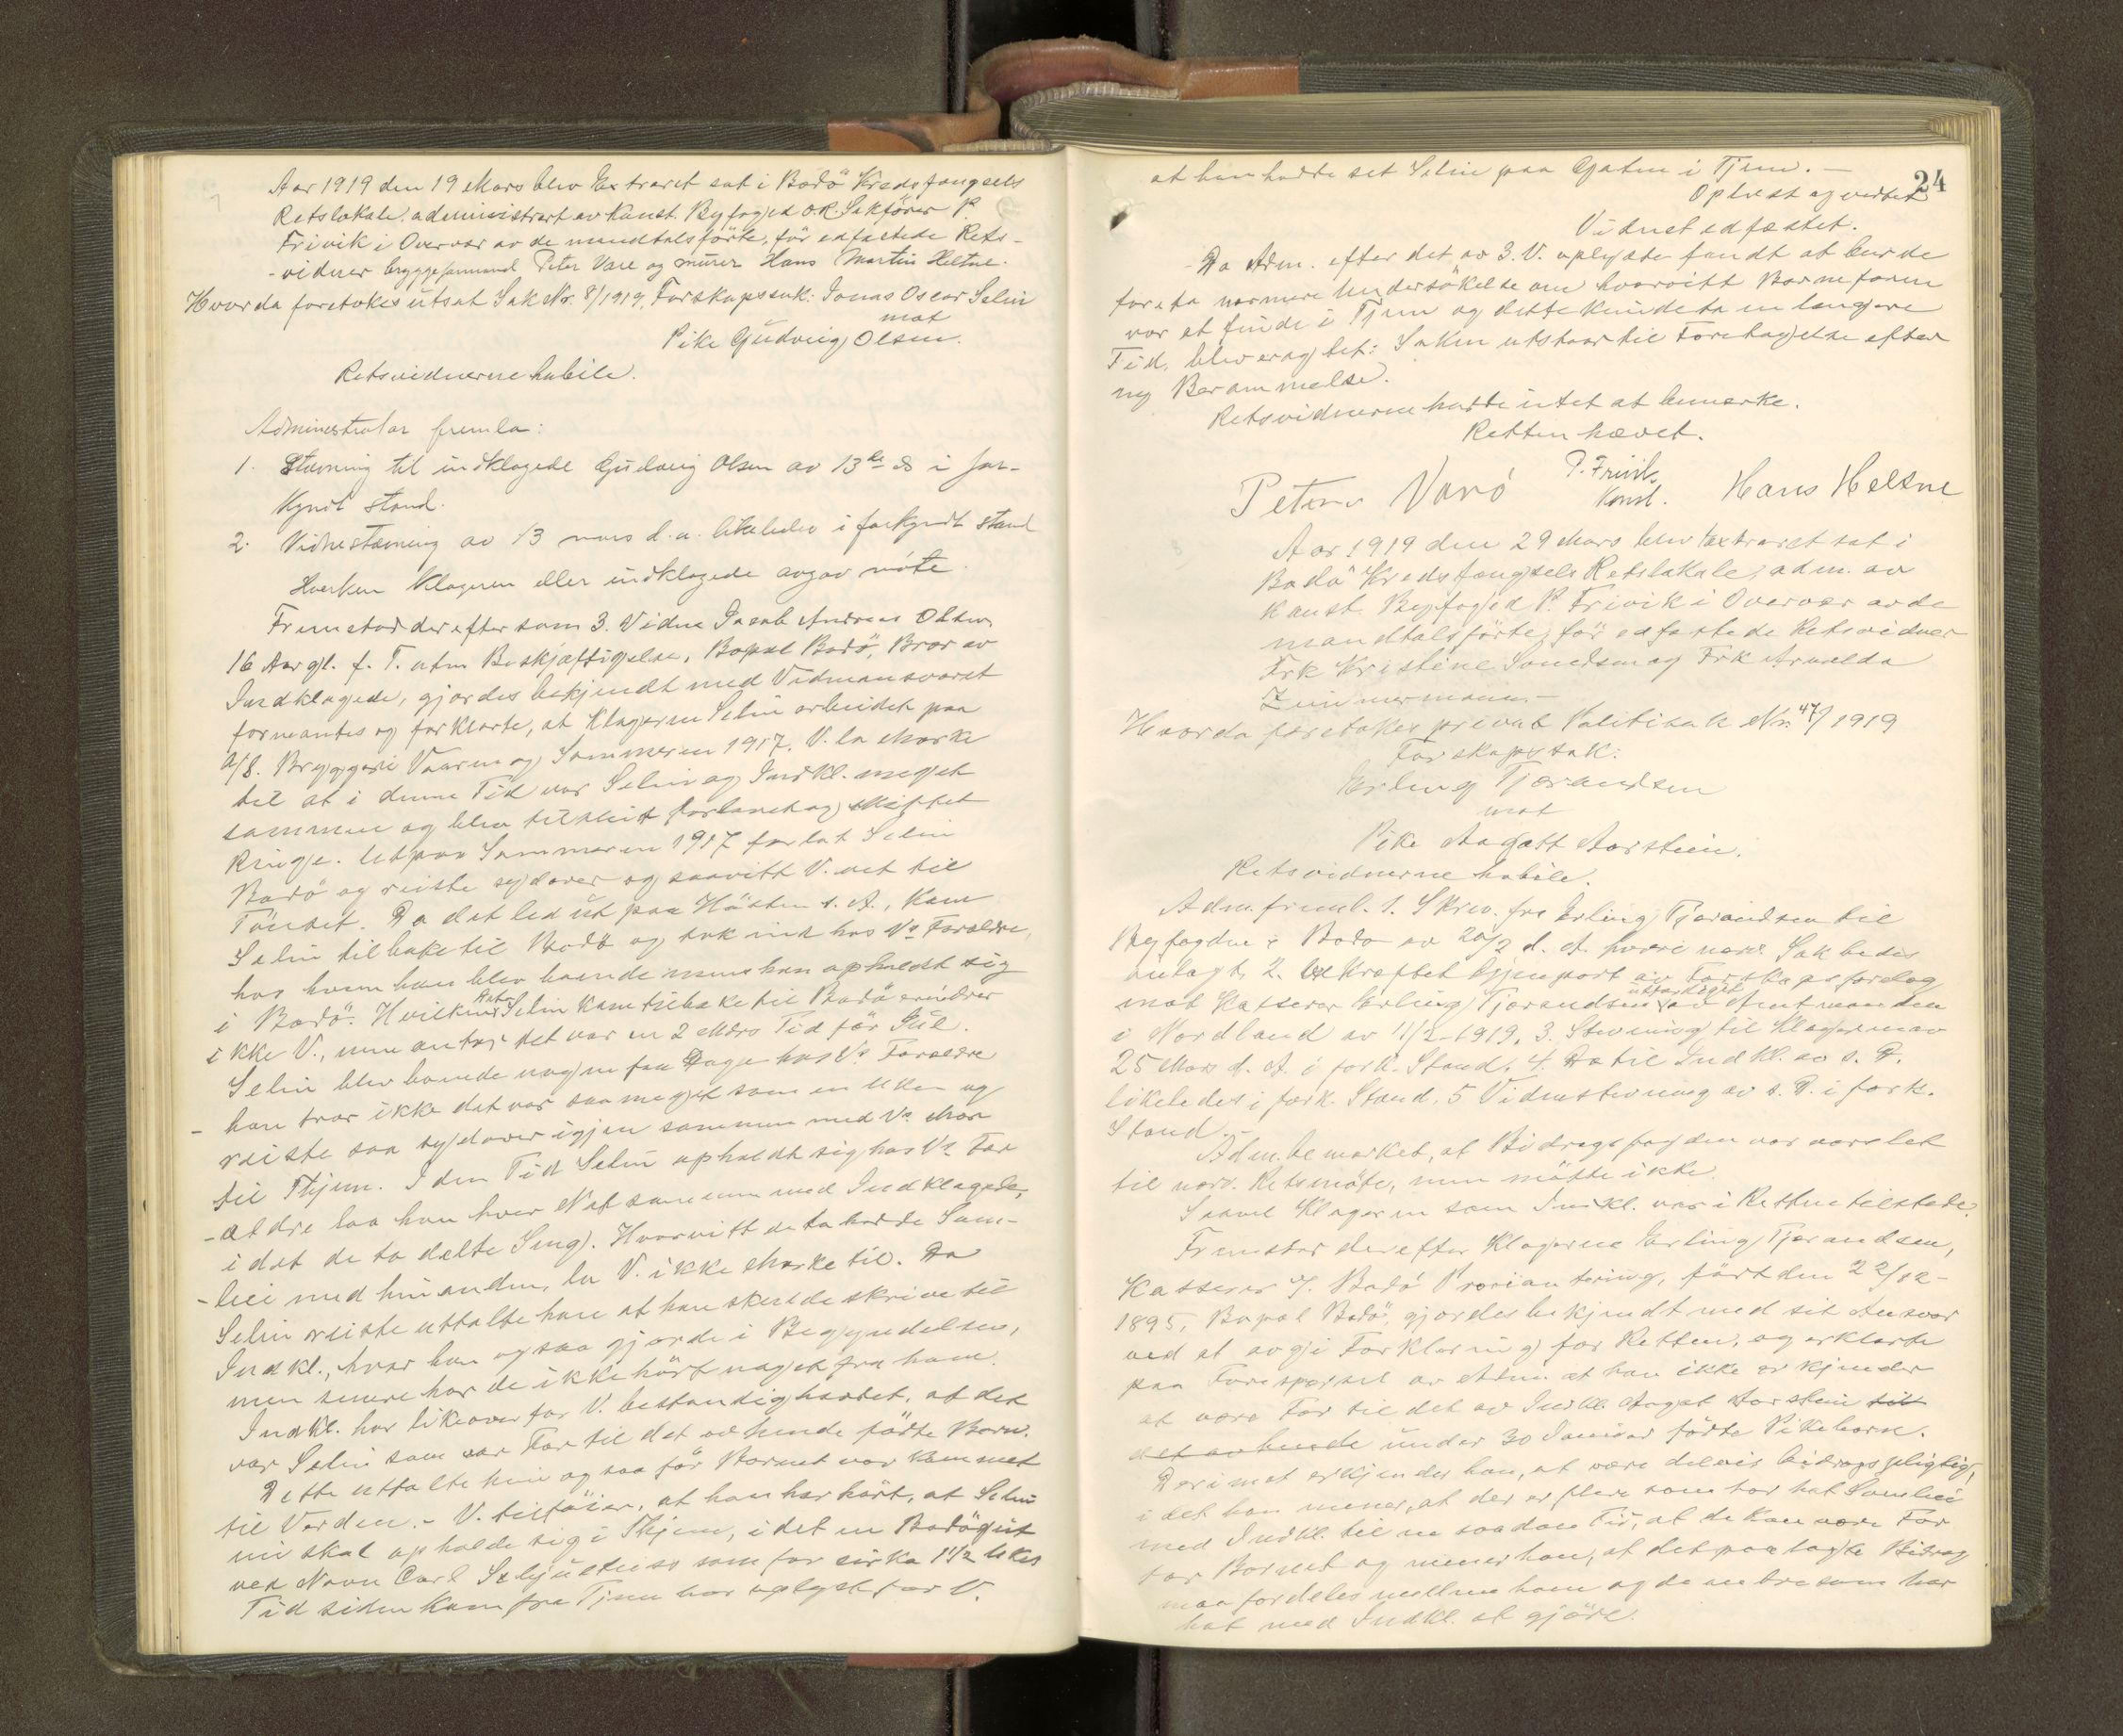 Aar 1919 den 19 Mars blev Extraret sat i Bodö Kredsfængsels
Retslokale, administrert av Konst. Byfoged O.R. Sakförer P.
Frivik i Overvær av de mandtalsförte, för edfæstede Rets-
-vidner bryggeformand Peter Vare og murer Hans Martin Heltne.
Hvorda foretokes utsat Sak No. 8/1919, Farskapssak: Jonas Oscar Selin
mot
Pike Gudveig Olsen.
Retsvidnerne habile.
Administrator fremla:
1. Stævning til indklagede Gudveig Olsen av 13de ds i for-
kyndt stand.
2. Vidnestævning av 13 mars d.a. likeledes i forkyndt stand
Hverken Klageren eller indklagede avgav möte.
Fremstod derefter som 3. Vidne Jacob Andreas Olsen,
16 Aar gl. f. T. uten Beskjæftigelse, Bopæl Bodö, Bror av
Indklagede, gjordes bekjendt med Vidneansvaret
formantes og forklarte, at Klageren Selin arbeidet paa
A/S. Bryggeri Vaaren og Sommeren 1917. V. la Mærke
til at i denne Tid var Selin og Indkl. meget
sammen og blev tilslut forlovet og skiftet
Ringe. Utpaa Sommeren 1917 forlot Selin
Bodö og reiste sydover og saavitt V. vet til
Tönset. Da det led ut paa Hösten s. A., kom
Selin tilbake til Bodö og tok ind hos Vs Forældre,
hos hvem han blev boende mens han opholdt sig
i Bodö. Hvilken Dato Selin kom tilbake til Bodö erindrer
ikke V., men antar det var en 2 Mdrs Tid för Jul.
Selin blev boende nogen faa Dage hos Vs Forældre
- han tror ikke det var saa meget som en Uke - og
reiste saa sydover igjen sammen med Vs Mor
til Thjem. I den Tid Selin opholdt sig hos Vs For
-ældre laa han hver Nat sammen med Indklagede,
i det de to delte Seng. Hvorvitt de to hadde Sam-
-leie med hinanden, la V. ikke Mærke til. Da
Selin reiste uttalte han at han skulde skrive til
Indkl., hvad han ogsaa gjorde i Begyndelsen,
men senere har de ikke hört noget fra ham.
Indkl. har likeoverfor V. bestandig hævdet, at det
var Selin som var Far til det av hende födte Barn.
Dette uttalte hun ogsaa för Barnet var kommet
til Verden. - V. tilföier, at han har hört, at Selin
nu skal opholde sig i Thjem, i det en Bodögut
ved Navn Carl Schjultniss som for cirka 1 1/2 Ukes
Tid siden kom fra Tjem har oplyst for V.
24
at han hadde set Selin paa Gaten i Tjem. -
Oplæst og vedtat
Vidnet edfæstet.
- Da Adm. efter det av 3. V. oplyste fandt at burde
foreta nærmere Undersökelse om hvorvitt Barnefaren
var at finde i Tjem og dette kunde ta en længere
Tid, blev eragtet: Saken utstaar til Foretagelse efter
ny Berammelse.
Retsvidnerne hadde intet at bemerke.
Retten hævet.
P. Frivik
Konst.
Hans Heltne
Aar 1919 den 29 Mars blev Extraret sat i
Bodö Kredsfængsels Retslokale, adm. av
Konst. Byfoged P. Frivik i Overvær av de
mandtalsförte, för edfæstede Retsvidner
Frk Kristine Soudsen og Frk Arnolda
Zimmermann -
Hvorda foretokes privat Politisak No. 47/1919
Farskapssak:
Erling Tjærandsen
mot
Pike Aagatt Aarstein.
Retsvidnerne habile.
Adm. freml. 1. Skriv. fra Erling Tjærandsen til
Byfogden i Bodö av 20/2 d. A. hvori nærv. Sak bedes
antagt, 2. Bekræftet Gjenpart av Farskapsforelæg
mot Kasserer Erling Tjærandsen utfærdiget av Amtmanden
i Nordland av 11/2-1919, 3. Stevning til Klageren av
25 Mars d. A. i fork. Stand, 4. Do til Indkl. av s. D.
likeledes i fork. Stand. 5 Vidnestevning av s. D. i fork.
Stand. -
Adm. bemerket, at Bidragsfogden var varslet
til nærv. Retsmöte, men mötte ikke
Saavel Klageren som Indkl. var i Retten tilstede.
Fremstod derefter Klageren Erling Tjærandsen,
Kasserer v. Bodö Proviantering, födt den 22/12-
1895, Bopæl Bodö, gjordes bekjendt med sit Ansvar
ved at avgi Forklaring for Retten, og erklærte
paa Forespørsel av Adm. at han ikke erkjender
at være Far til det av Indkl. Aagot Aarstein til
det av hende under 30 Januar födte Pikebarn.
Derimot erkjender han, at være delvis bidragspligtig,
i det han mener, at der er flere som har hat Samleie
med Indkl. til en saadan Tid, at de kan være Far
for Barnet og mener han, at det paalagte Bidrag
maa fordeles mellem ham og de andre som har
hat med Indkl. at gjöre.